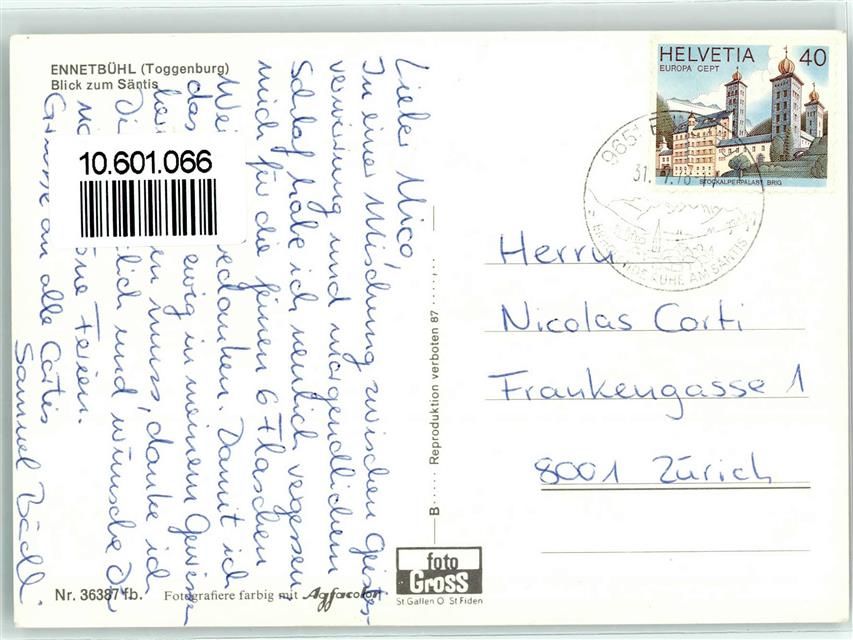 ENNETBÜHL (Toggenburg)
Blick zum Säntis
10.601.066
Lieber Nico,
In einer Mischung zwischen Geistes-
verwirrung und morgendlichem
Schlaf habe ich neulich vegessen,
mich für die feinen 6 Flaschen
Wei edanken. Damit ich
das ewig in meinem Gewissen
en muss, danke ich
Di lich und wünsche Dir
no öne Ferien.
Grüsse an alle Cortis
Samuel
B Reproduktion verboten 87
HELVETIA 40
EUROPA CEPT
STOCKALPERPALAST BRIG
965
31. 7.78
AM SÄNTIS
Herrn
Nicolas Corti
Frankengasse 1
8001 Zürich
Nr. 36387 fb. Fotografiere farbig mit Agfacolor
foto
Gross
St Gallen O. St Fiden